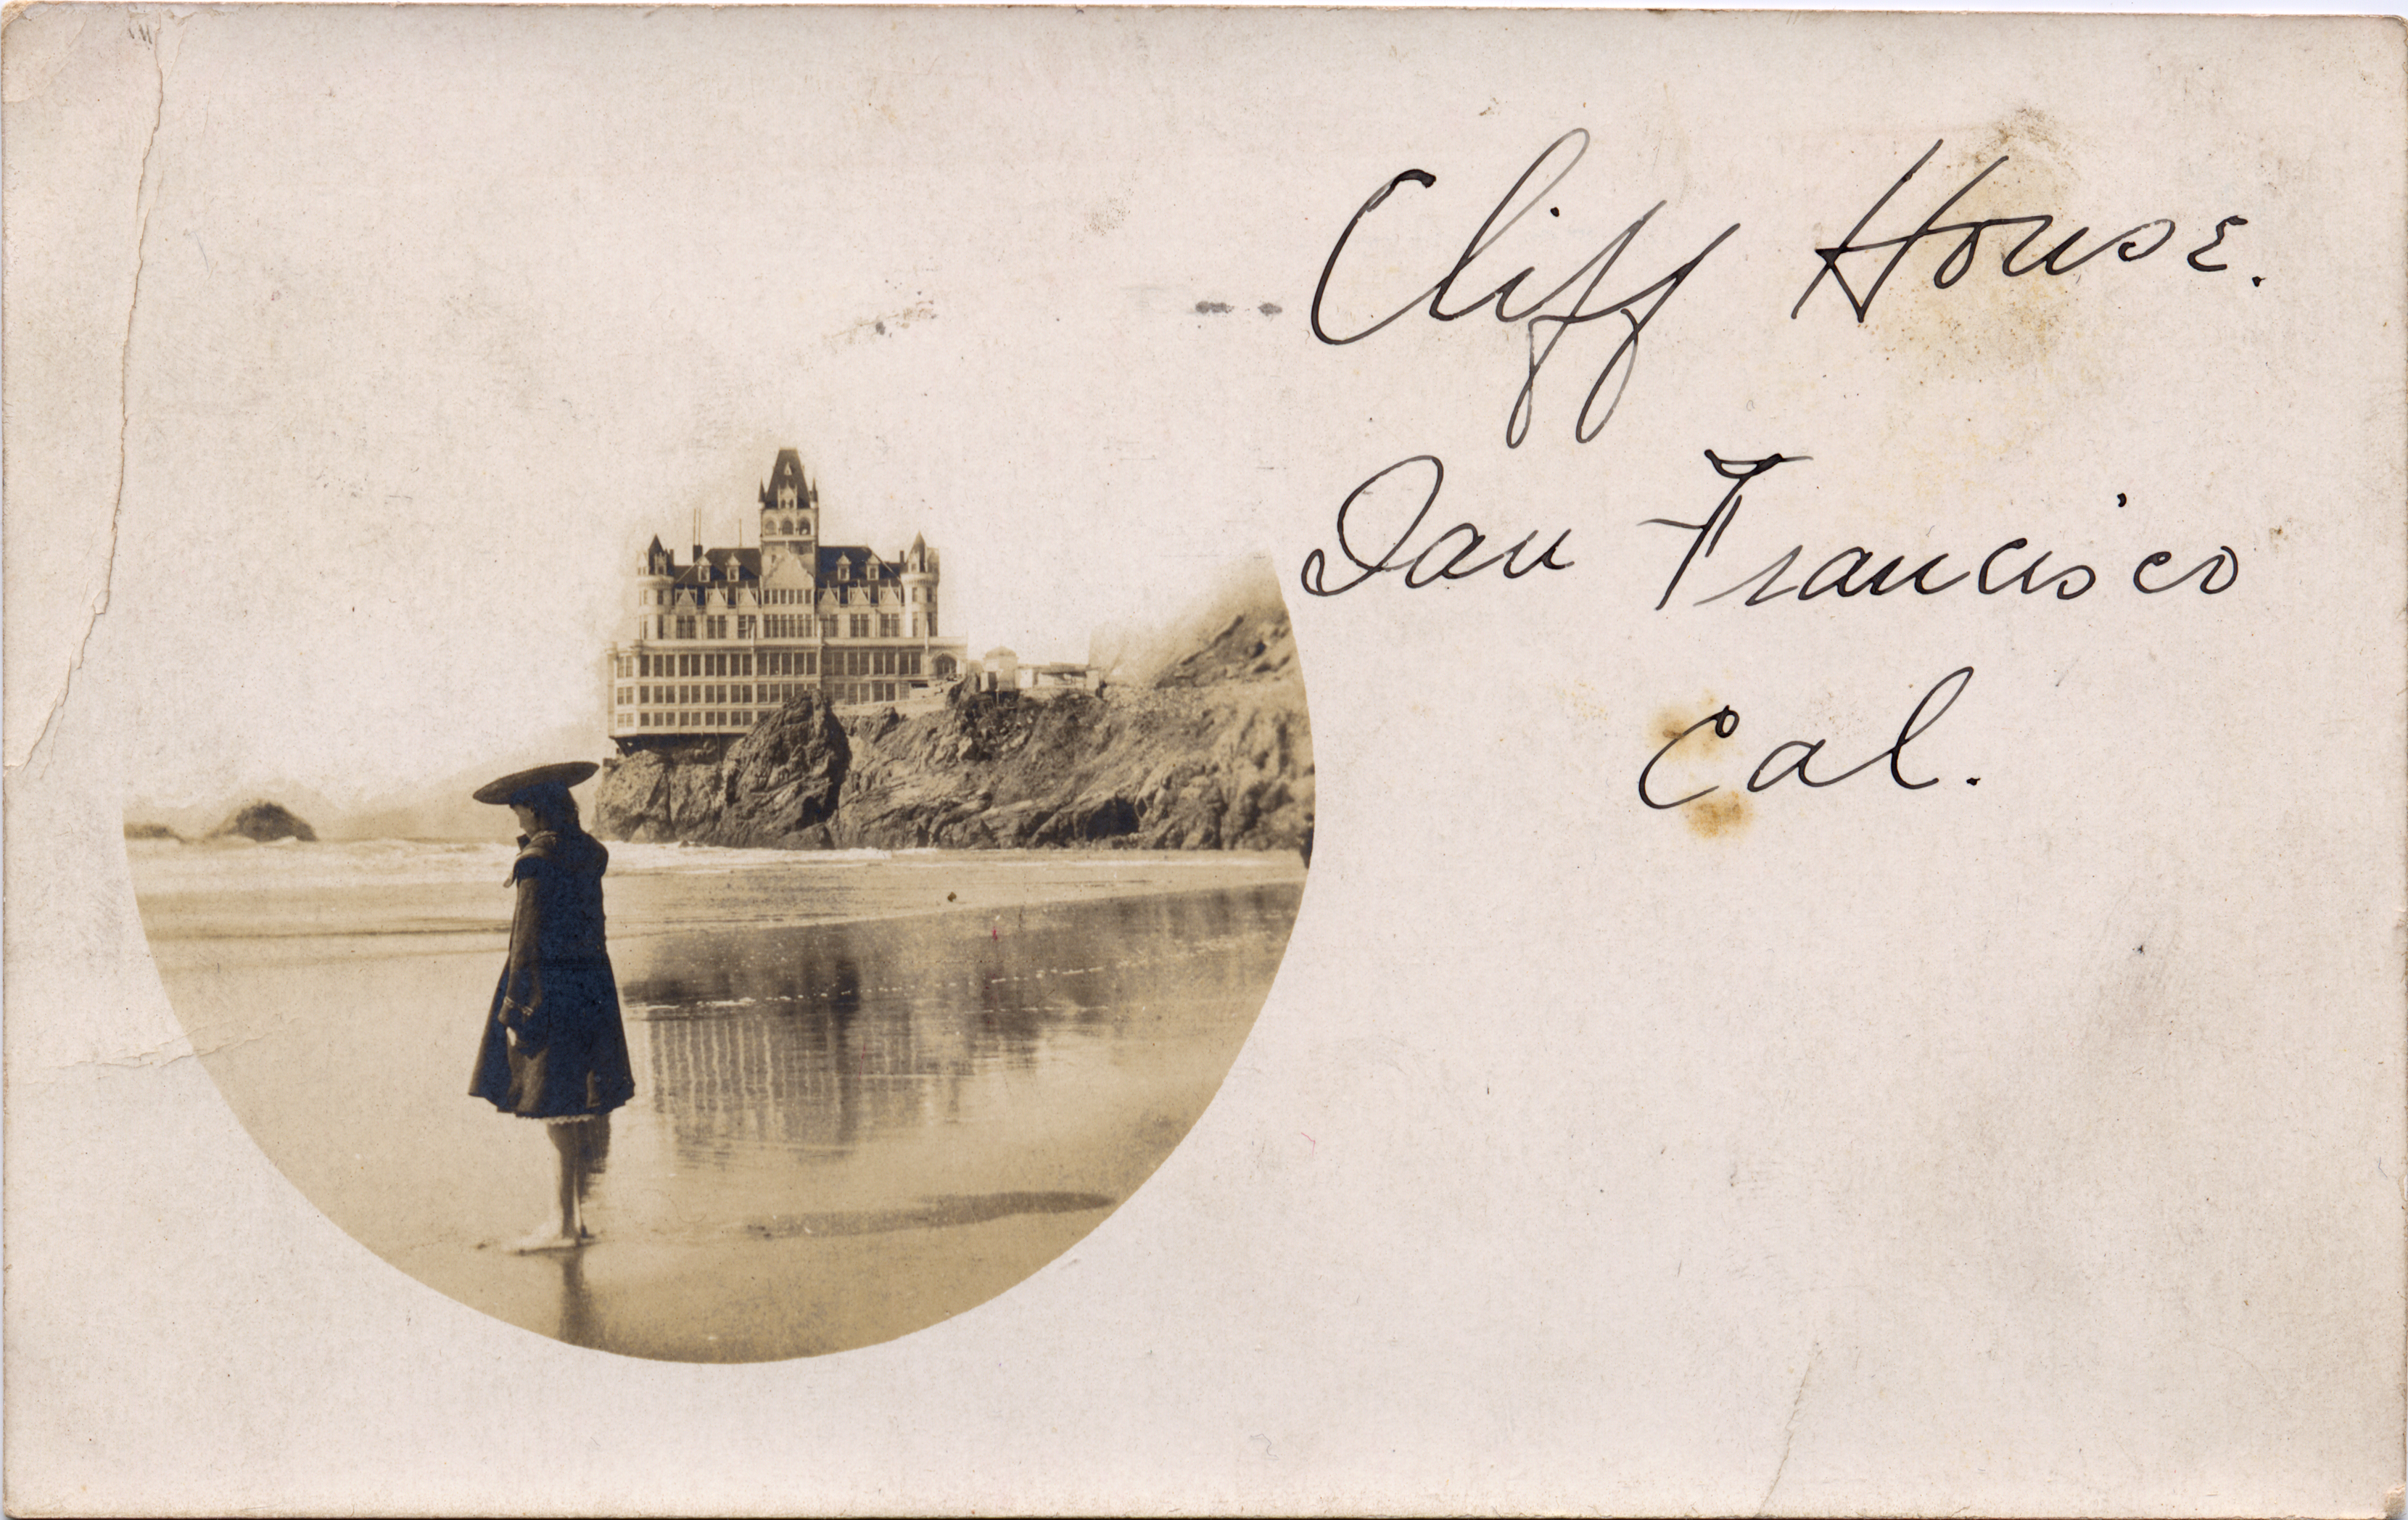 Cliff House.
San Francisco
Cal.